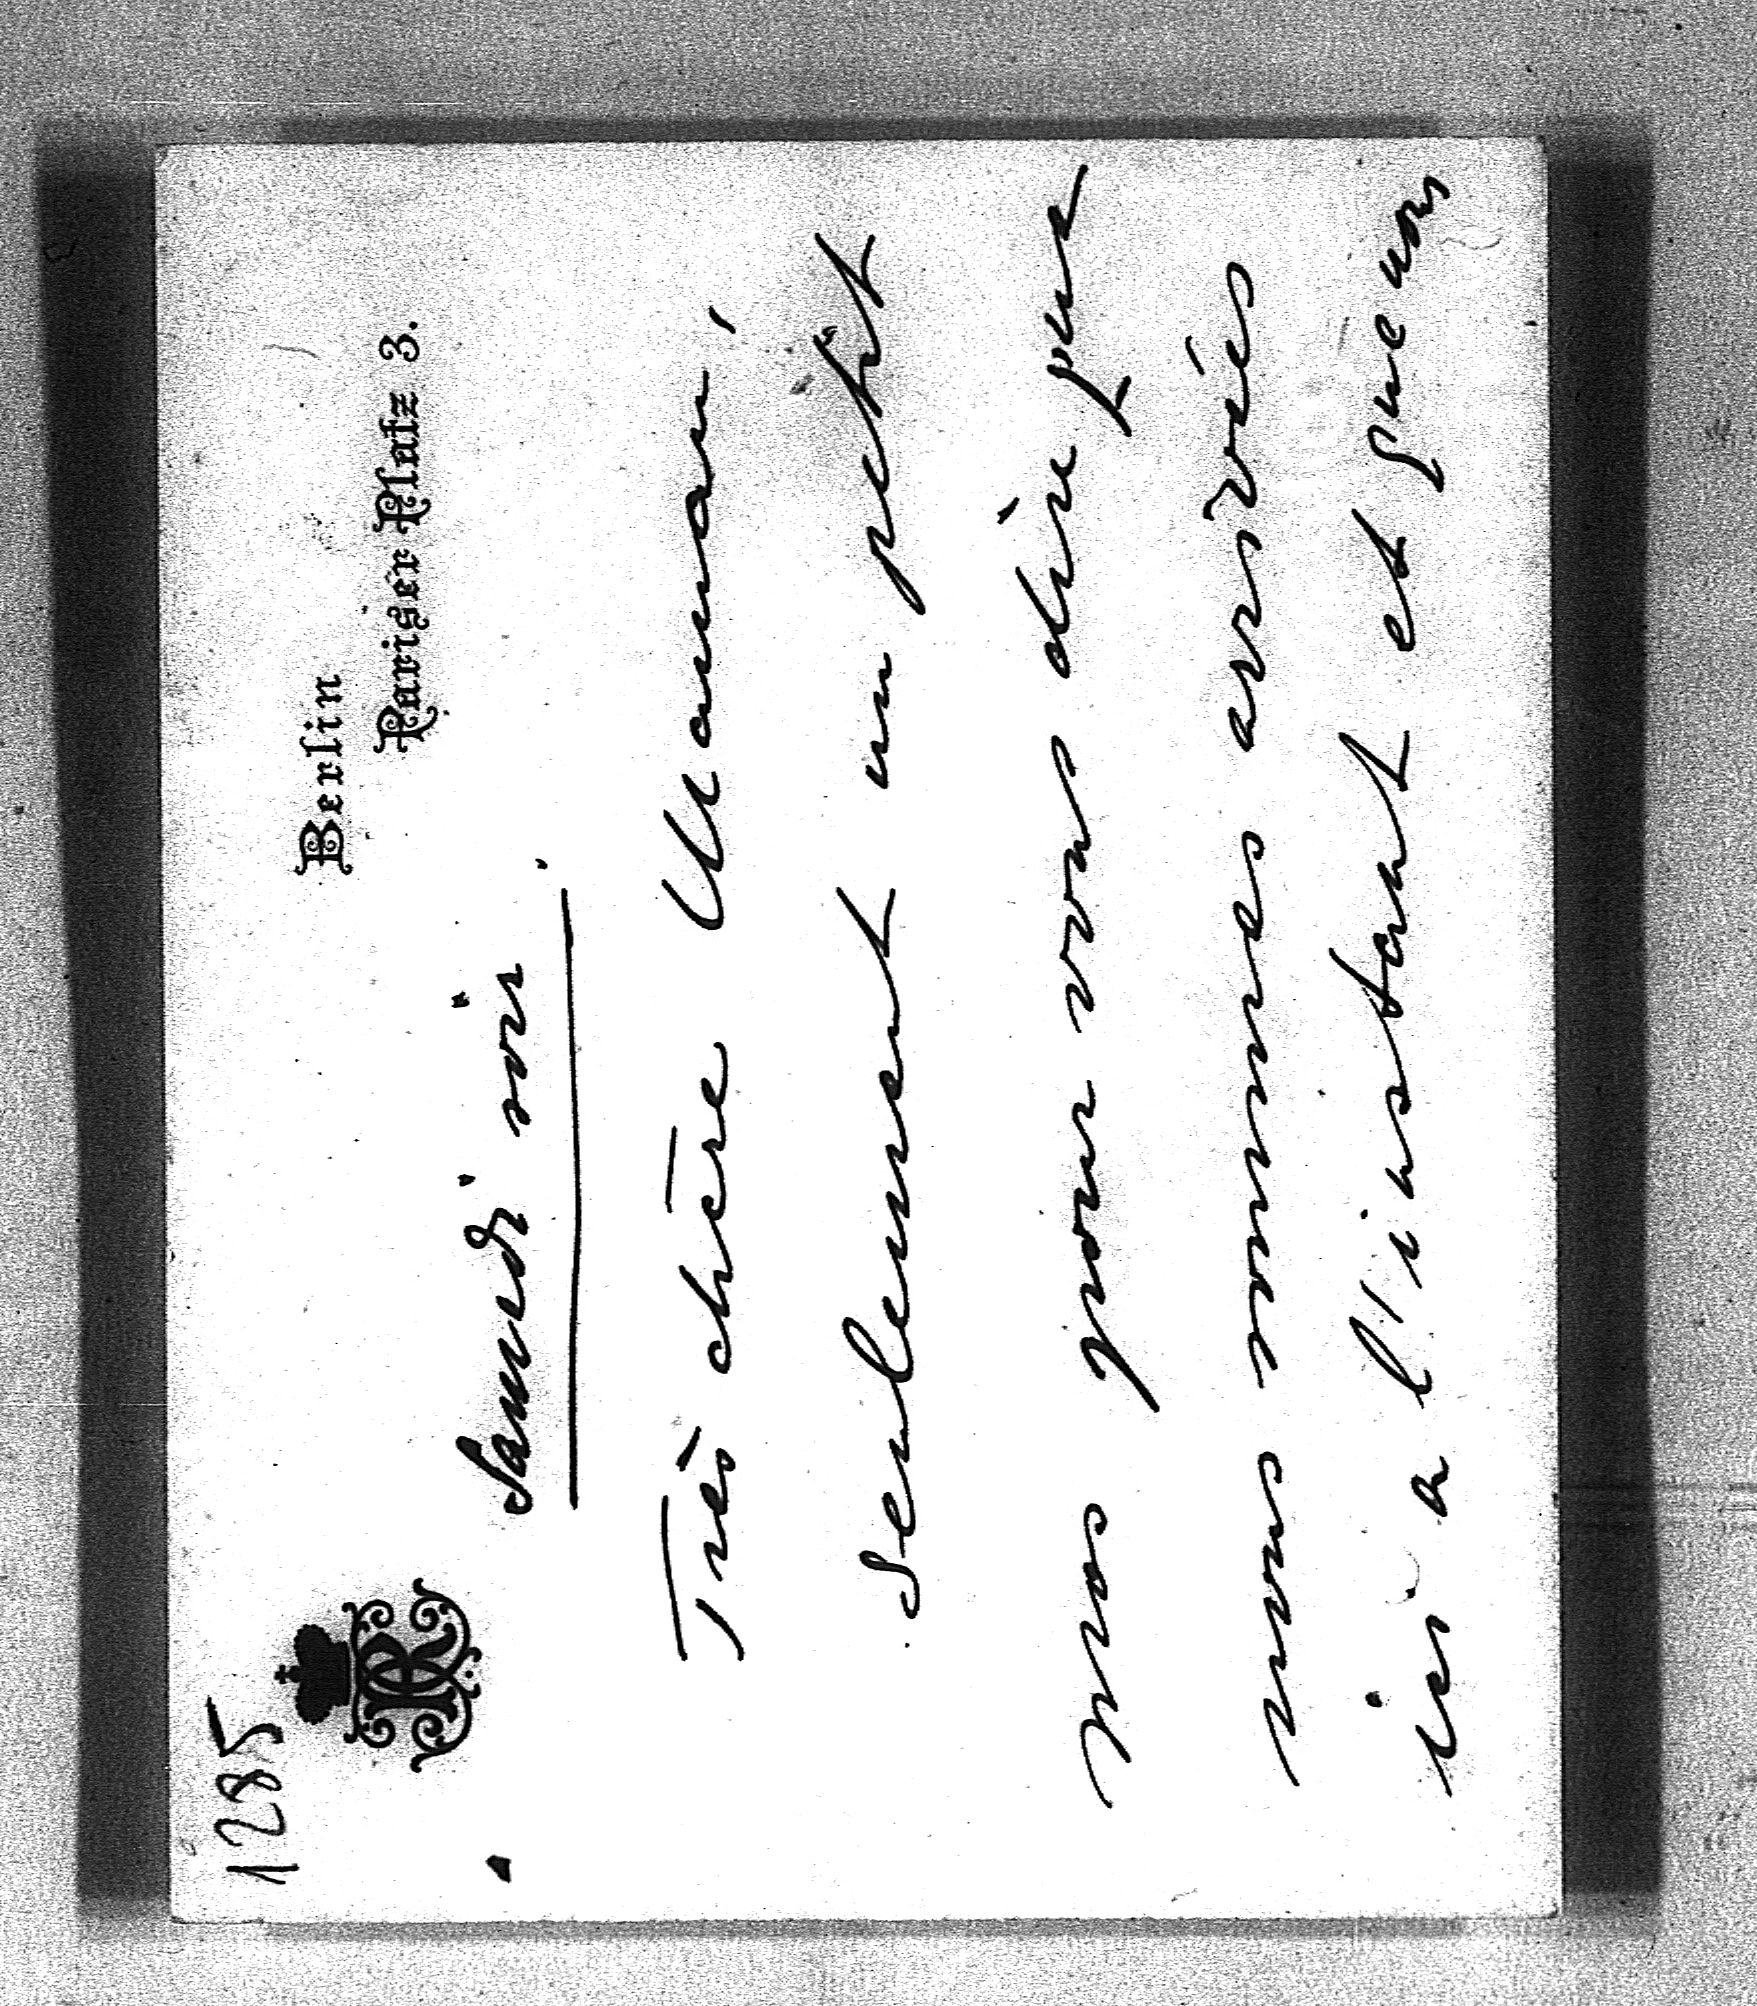 1285
Berlin
Pariser Platz 3.
Samedi soir.
Très chère Maman,
Seulement un petit
mos pour vous dire que
nous sommes arrivés
ici a l'instant et que vos